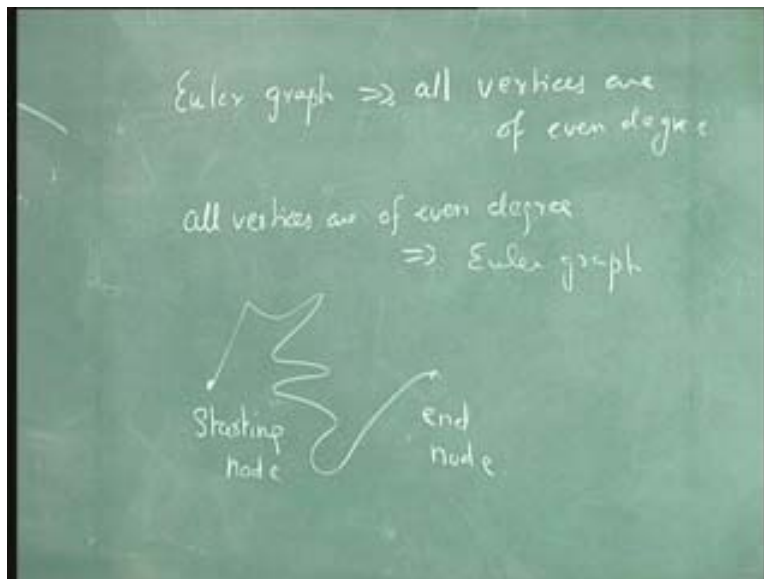 Euler graph => all vertices are
of even degree
all vertices are of even degree
=> Euler graph
Starting
node
end
node